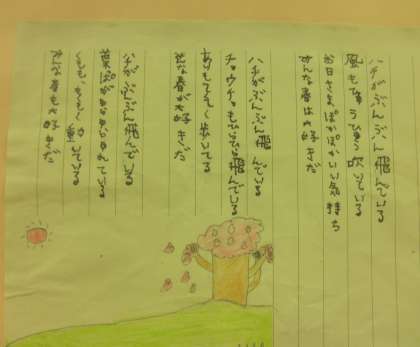 ハチがぶんぶん飛んでいる
風もひゅうひゅう吹いている
お日さまぽかぽかいい気持ち
みんな春は大好きだ
ハチがぶんぶん飛んでいる
チョウチョもひらひら飛んでいる
ありもてくてく歩いている
みんな春が大好きだ
ハチがぶんぶん飛んでいる
葉っぱが
くもももくもく動いている
みんな春も大好きだ